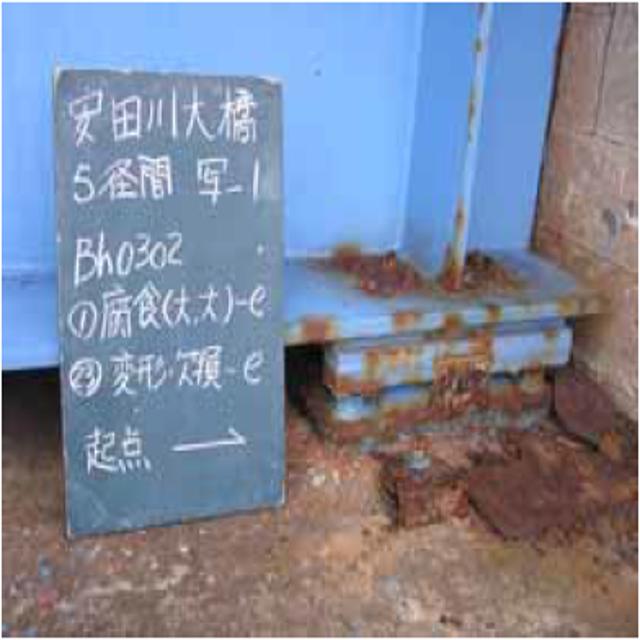 安田川大橋
5径間 写-1
Bh0302
①腐食(大,大)-e
㉓変形・欠損-e
起点 →